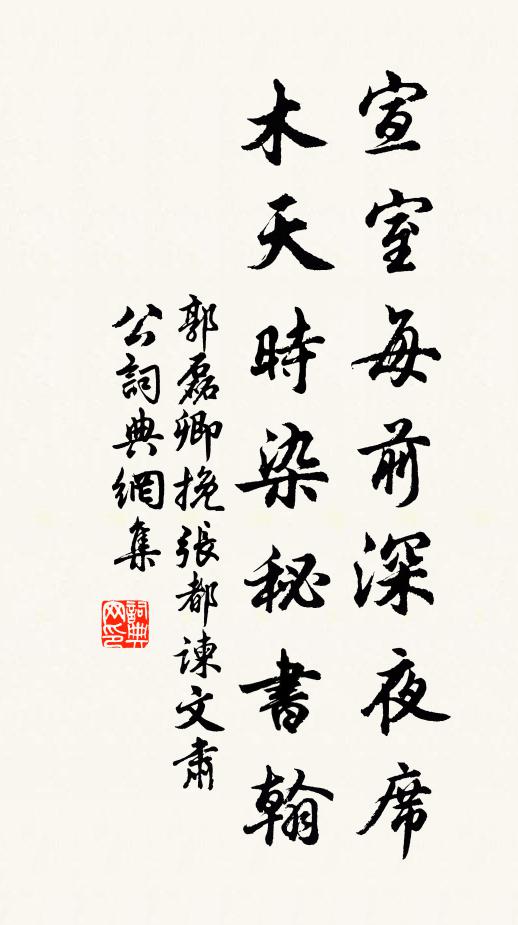 宣室每前深夜席
木天時染秘書翰
郭磊卿挽張都諫文肅
公詞典網集
詞典网印